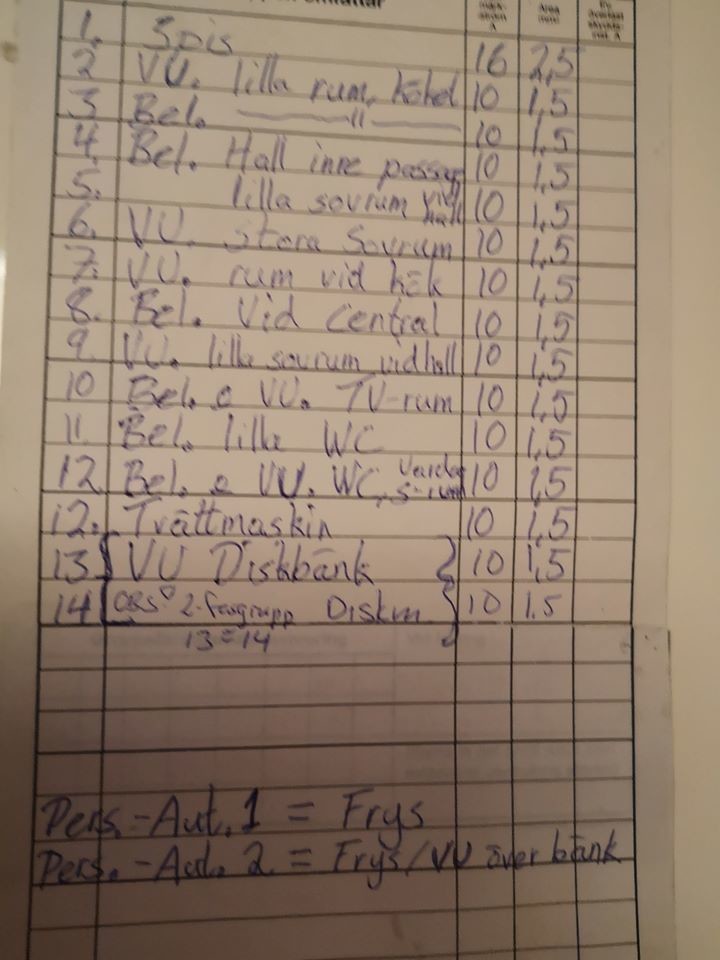 omfattar
1. Spis 16 2,5
2 VU. lilla rum, kökel 10 1,5
3 Bel. —— 〃 —— 10 1,5
4. Bel. Hall inne passage 10 1,5
5. lilla sovrum vid hall 10 1,5
6. VU. stora Sovrum 10 1,5
7. VU. rum vid kök 10 1,5
8. Bel. Vid Central 10 1,5
9. VU. lilla sovrum vid hall 10 1,5
10 Bel. o VU. TV-rum 10 1,5
11. Bel. lilla WC 10 1,5
12. Bel. o VU. WC, 10 1,5
12. Tvättmaskin 10 1,5
13 VU Diskbänk 10 1,5
14 OBS! 2-fasgrupp Diskm 10 1.5
13=14
Pers.-Aut. 1 = Frys
Pers.-Aut. 2. = Frys/VU över bänk